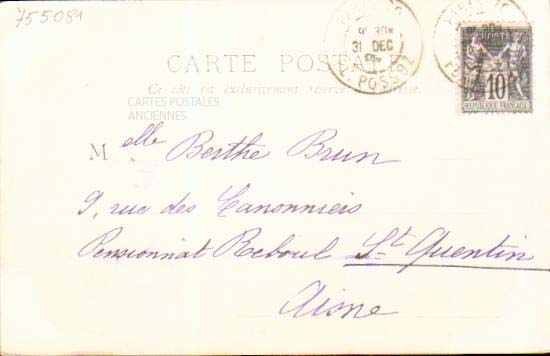 755081
PARIS
31 DEC
POSTE
10
RÉPUBLIQUE FRANÇAISE
CARTE POSTALE
Ce côté est exclusivement réservé à l'adresse.
CARTES POSTALES
ANCIENNES
Melle Berthe Brun
9, rue des Canonniers
Pensionnat Reboul St Quentin
Aisne